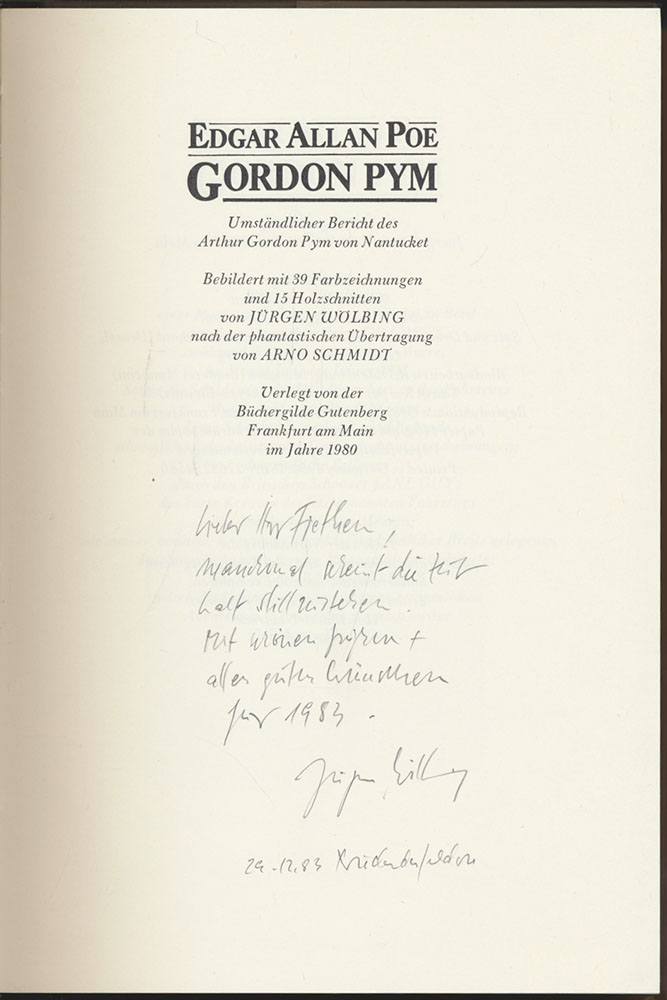 EDGAR ALLAN POE
GORDON PYM
Umständlicher Bericht des
Arthur Gordon Pym von Nantucket
Bebildert mit 39 Farbzeichnungen
und 15 Holzschnitten
von JÜRGEN WÖLBING
nach der phantastischen Übertragung
von ARNO SCHMIDT
Verlegt von der
Büchergilde Gutenberg
Frankfurt am Main
im Jahre 1980
Lieber Herr
manchmal scheint die Zeit
halt stillzustehen.
Mit schönen Grüßen +
allen guten Wünschen
für 1983.
Jürgen Wölbing
29.12.83